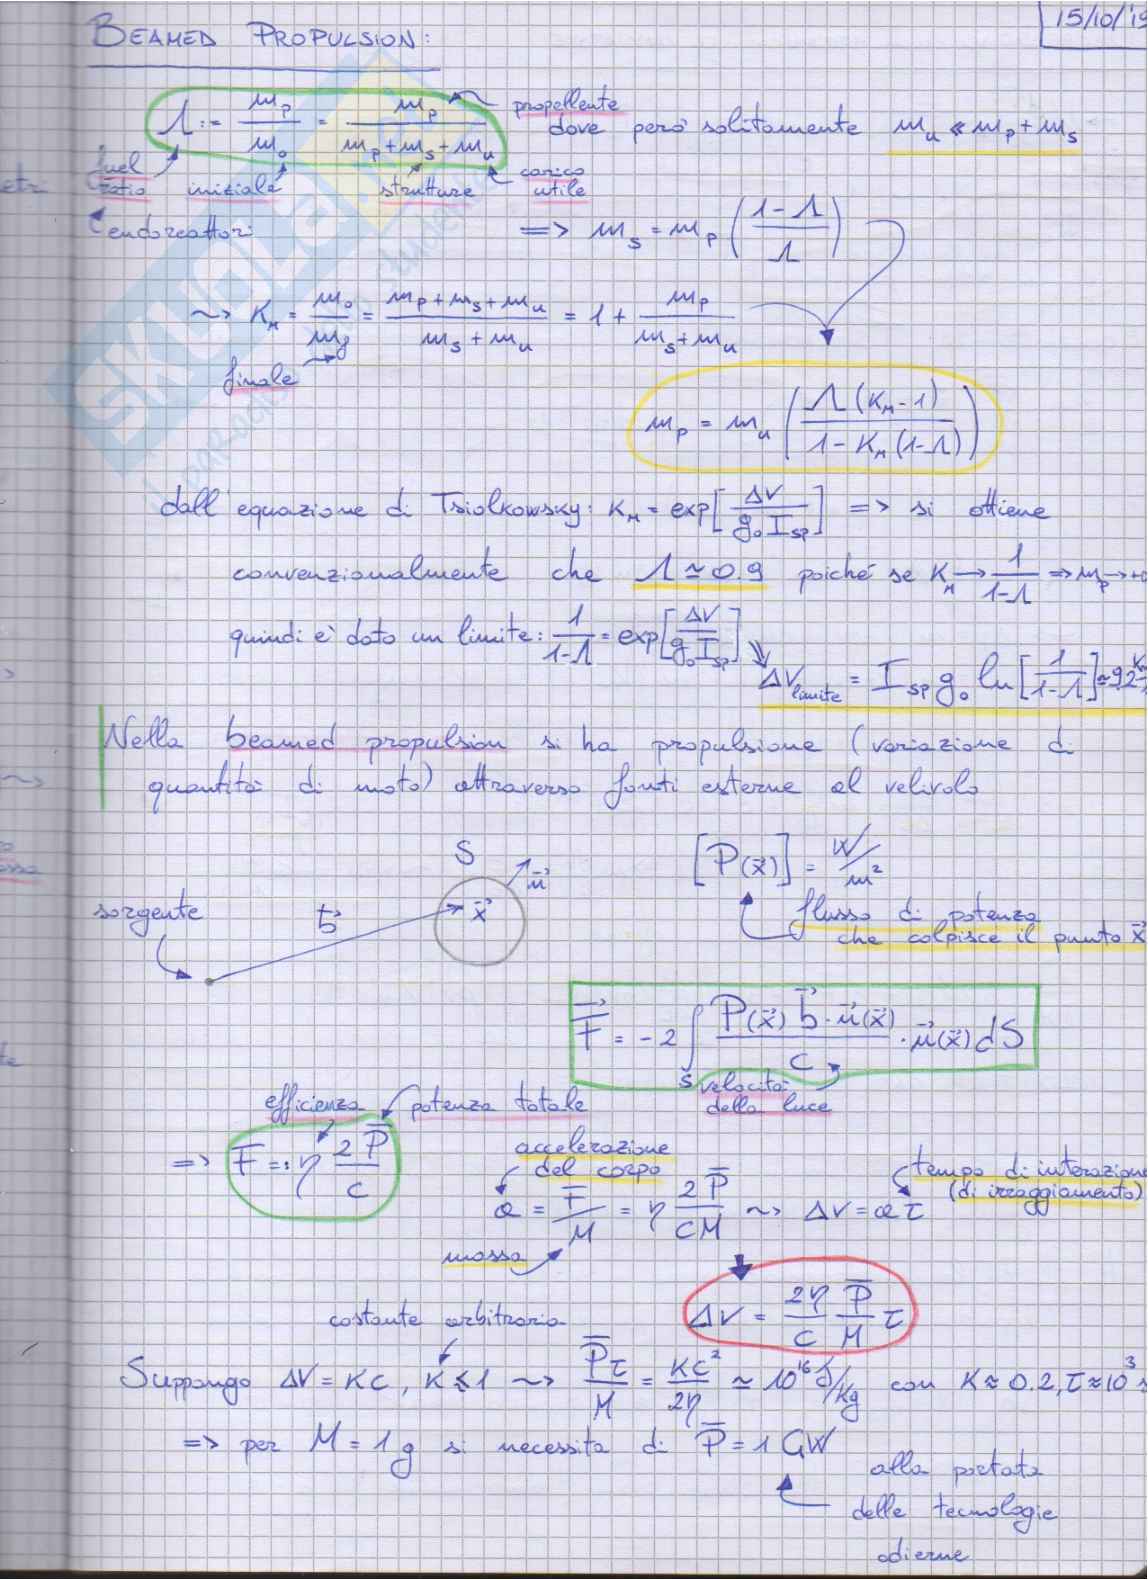 15/10/19
BEAMED PROPULSION:
Λ := m_p/m_o = m_p/(m_p+m_s+m_u) propellente dove però solitamente m_u ≪ m_p + m_s
fuel ratio iniziale strutture carico utile
endoreattori ⟹ m_s = m_p ((1-Λ)/Λ)
⤳ K_M = m_o/m_f = (m_p+m_s+m_u)/(m_s+m_u) = 1 + m_p/(m_s+m_u)
finale
m_p = m_u (Λ(K_M-1)/(1-K_M(1-Λ)))
dall'equazione di Tsiolkowsky: K_M = exp[ΔV/(g_o I_sp)] ⟹ si ottiene
convenzionalmente che Λ ≃ 0.9 poiché se K_M → 1/(1-Λ) ⟹ m_p → +∞
quindi è dato un limite: 1/(1-Λ) = exp[ΔV/(g_o I_sp)]
ΔV_limite = I_sp g_o ln[1/(1-Λ)] ≃ 9.2
Nella beamed propulsion si ha propulsione (variazione di
quantità di moto) attraverso fonti esterne al velivolo
S
n⃗
[P(x⃗)] = W/m²
sorgente b⃗ x⃗ flusso di potenza
che colpisce il punto x⃗
F⃗ = -2 ∫_S (P(x⃗) b⃗·n⃗(x⃗))/c · n⃗(x⃗) dS
velocità
della luce
efficienza potenza totale
⟹ F =: η 2P̅/c
accelerazione
del corpo
tempo di interazione
(di irraggiamento)
a = F/M = η 2P̅/(cM) ⤳ ΔV = aτ
massa
ΔV = (2η/c) (P̅/M) τ
costante arbitraria
Suppongo ΔV = Kc, K ≤ 1 ⤳ P̅τ/M = Kc²/2η ≃ 10¹⁶ J/Kg con K ≈ 0.2, τ ≈ 10³
⟹ per M = 1 g si necessita di P̅ = 1 GW
alla portata
delle tecnologie
odierne